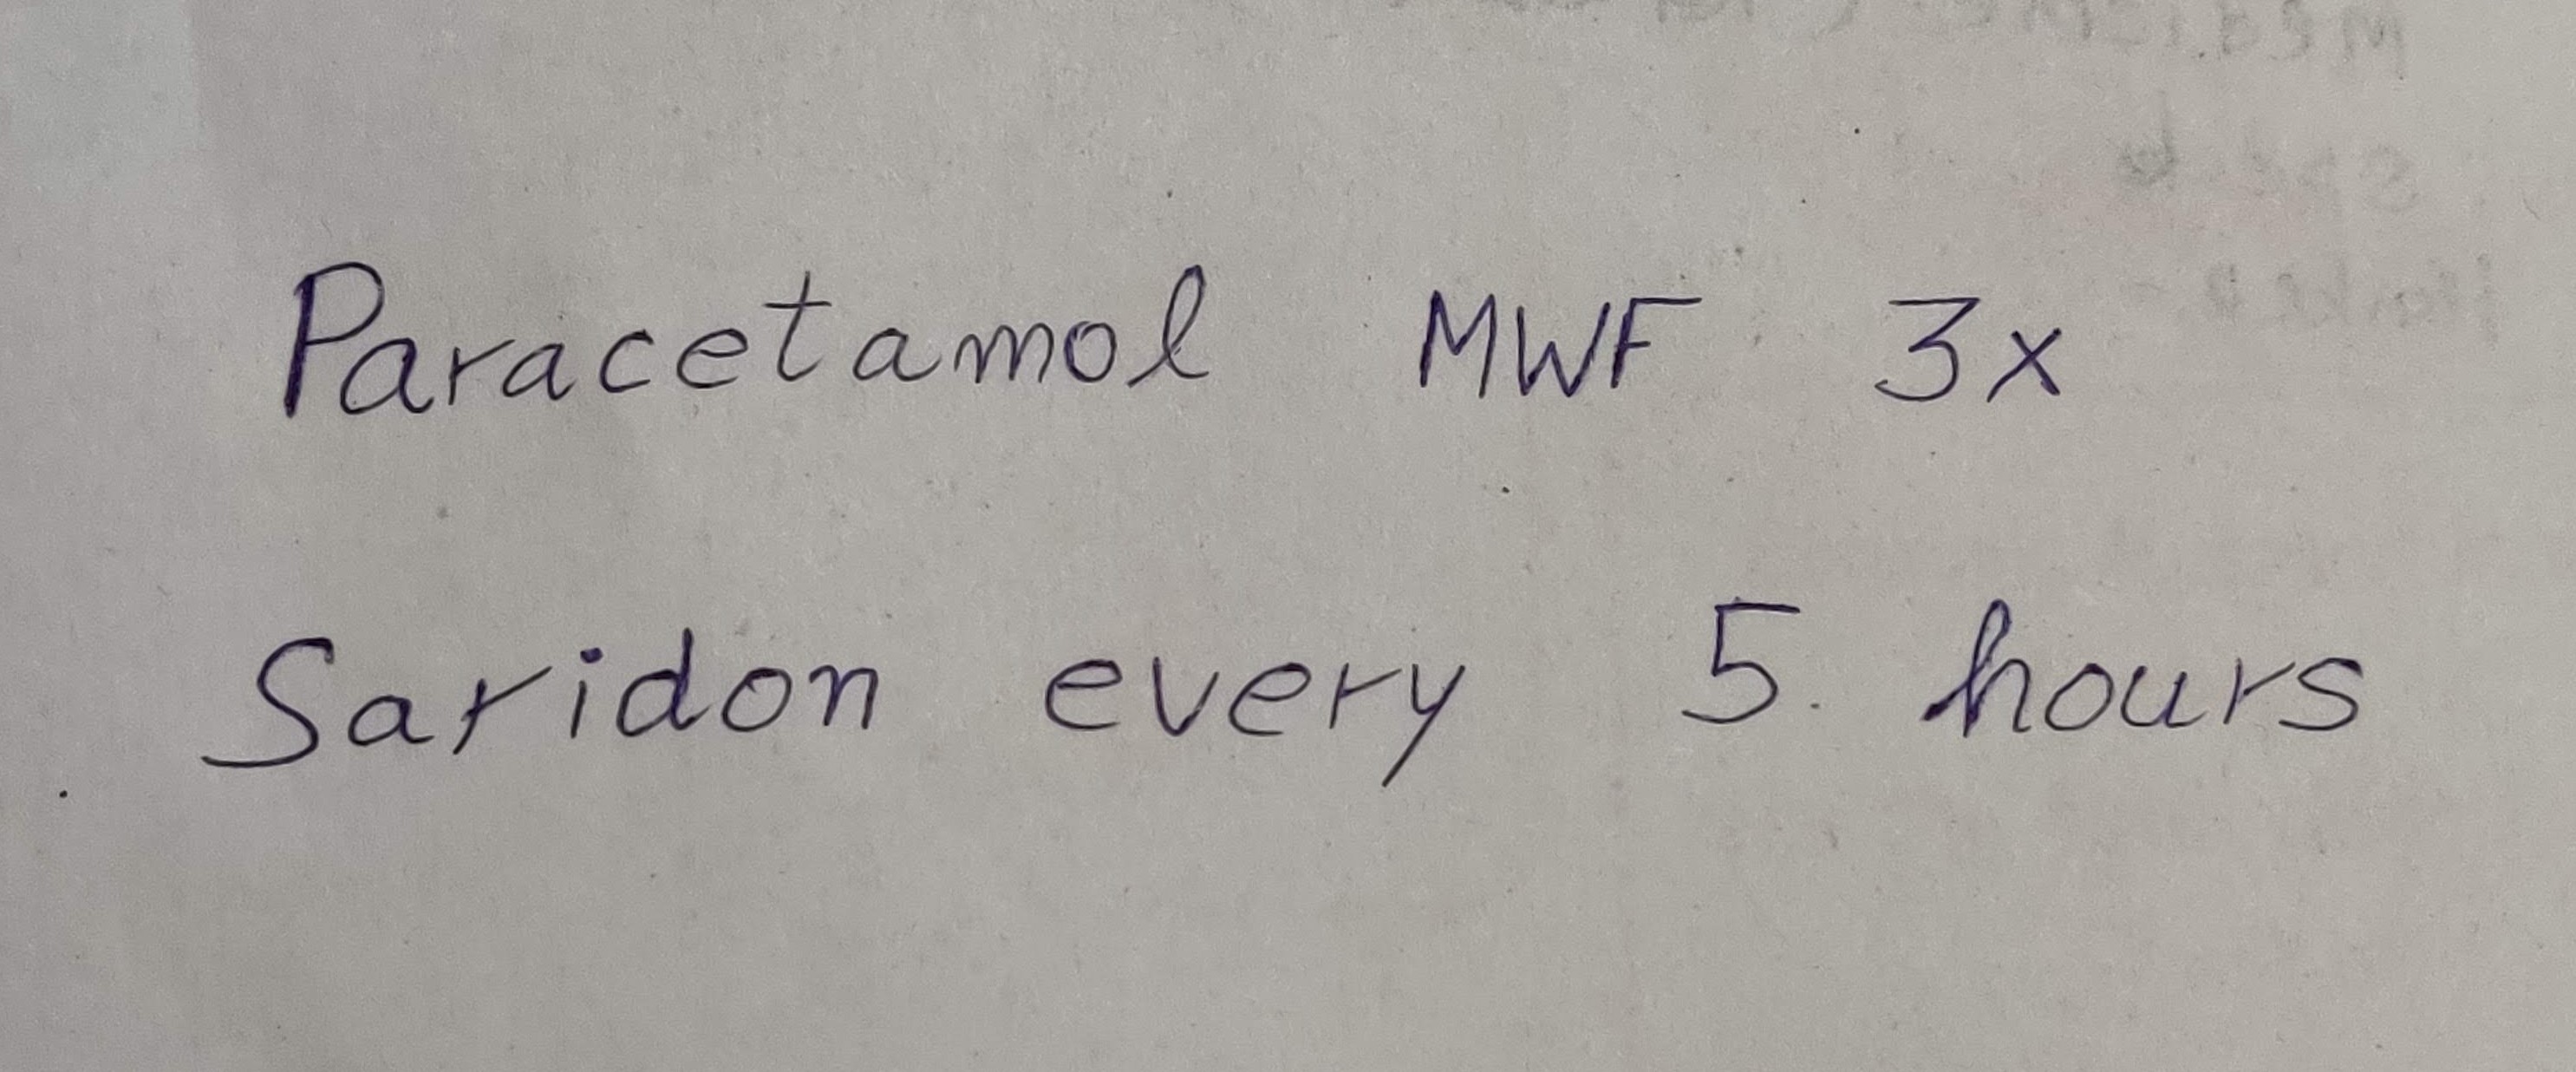 Paracetamol MWF 3x
Saridon every 5. hours